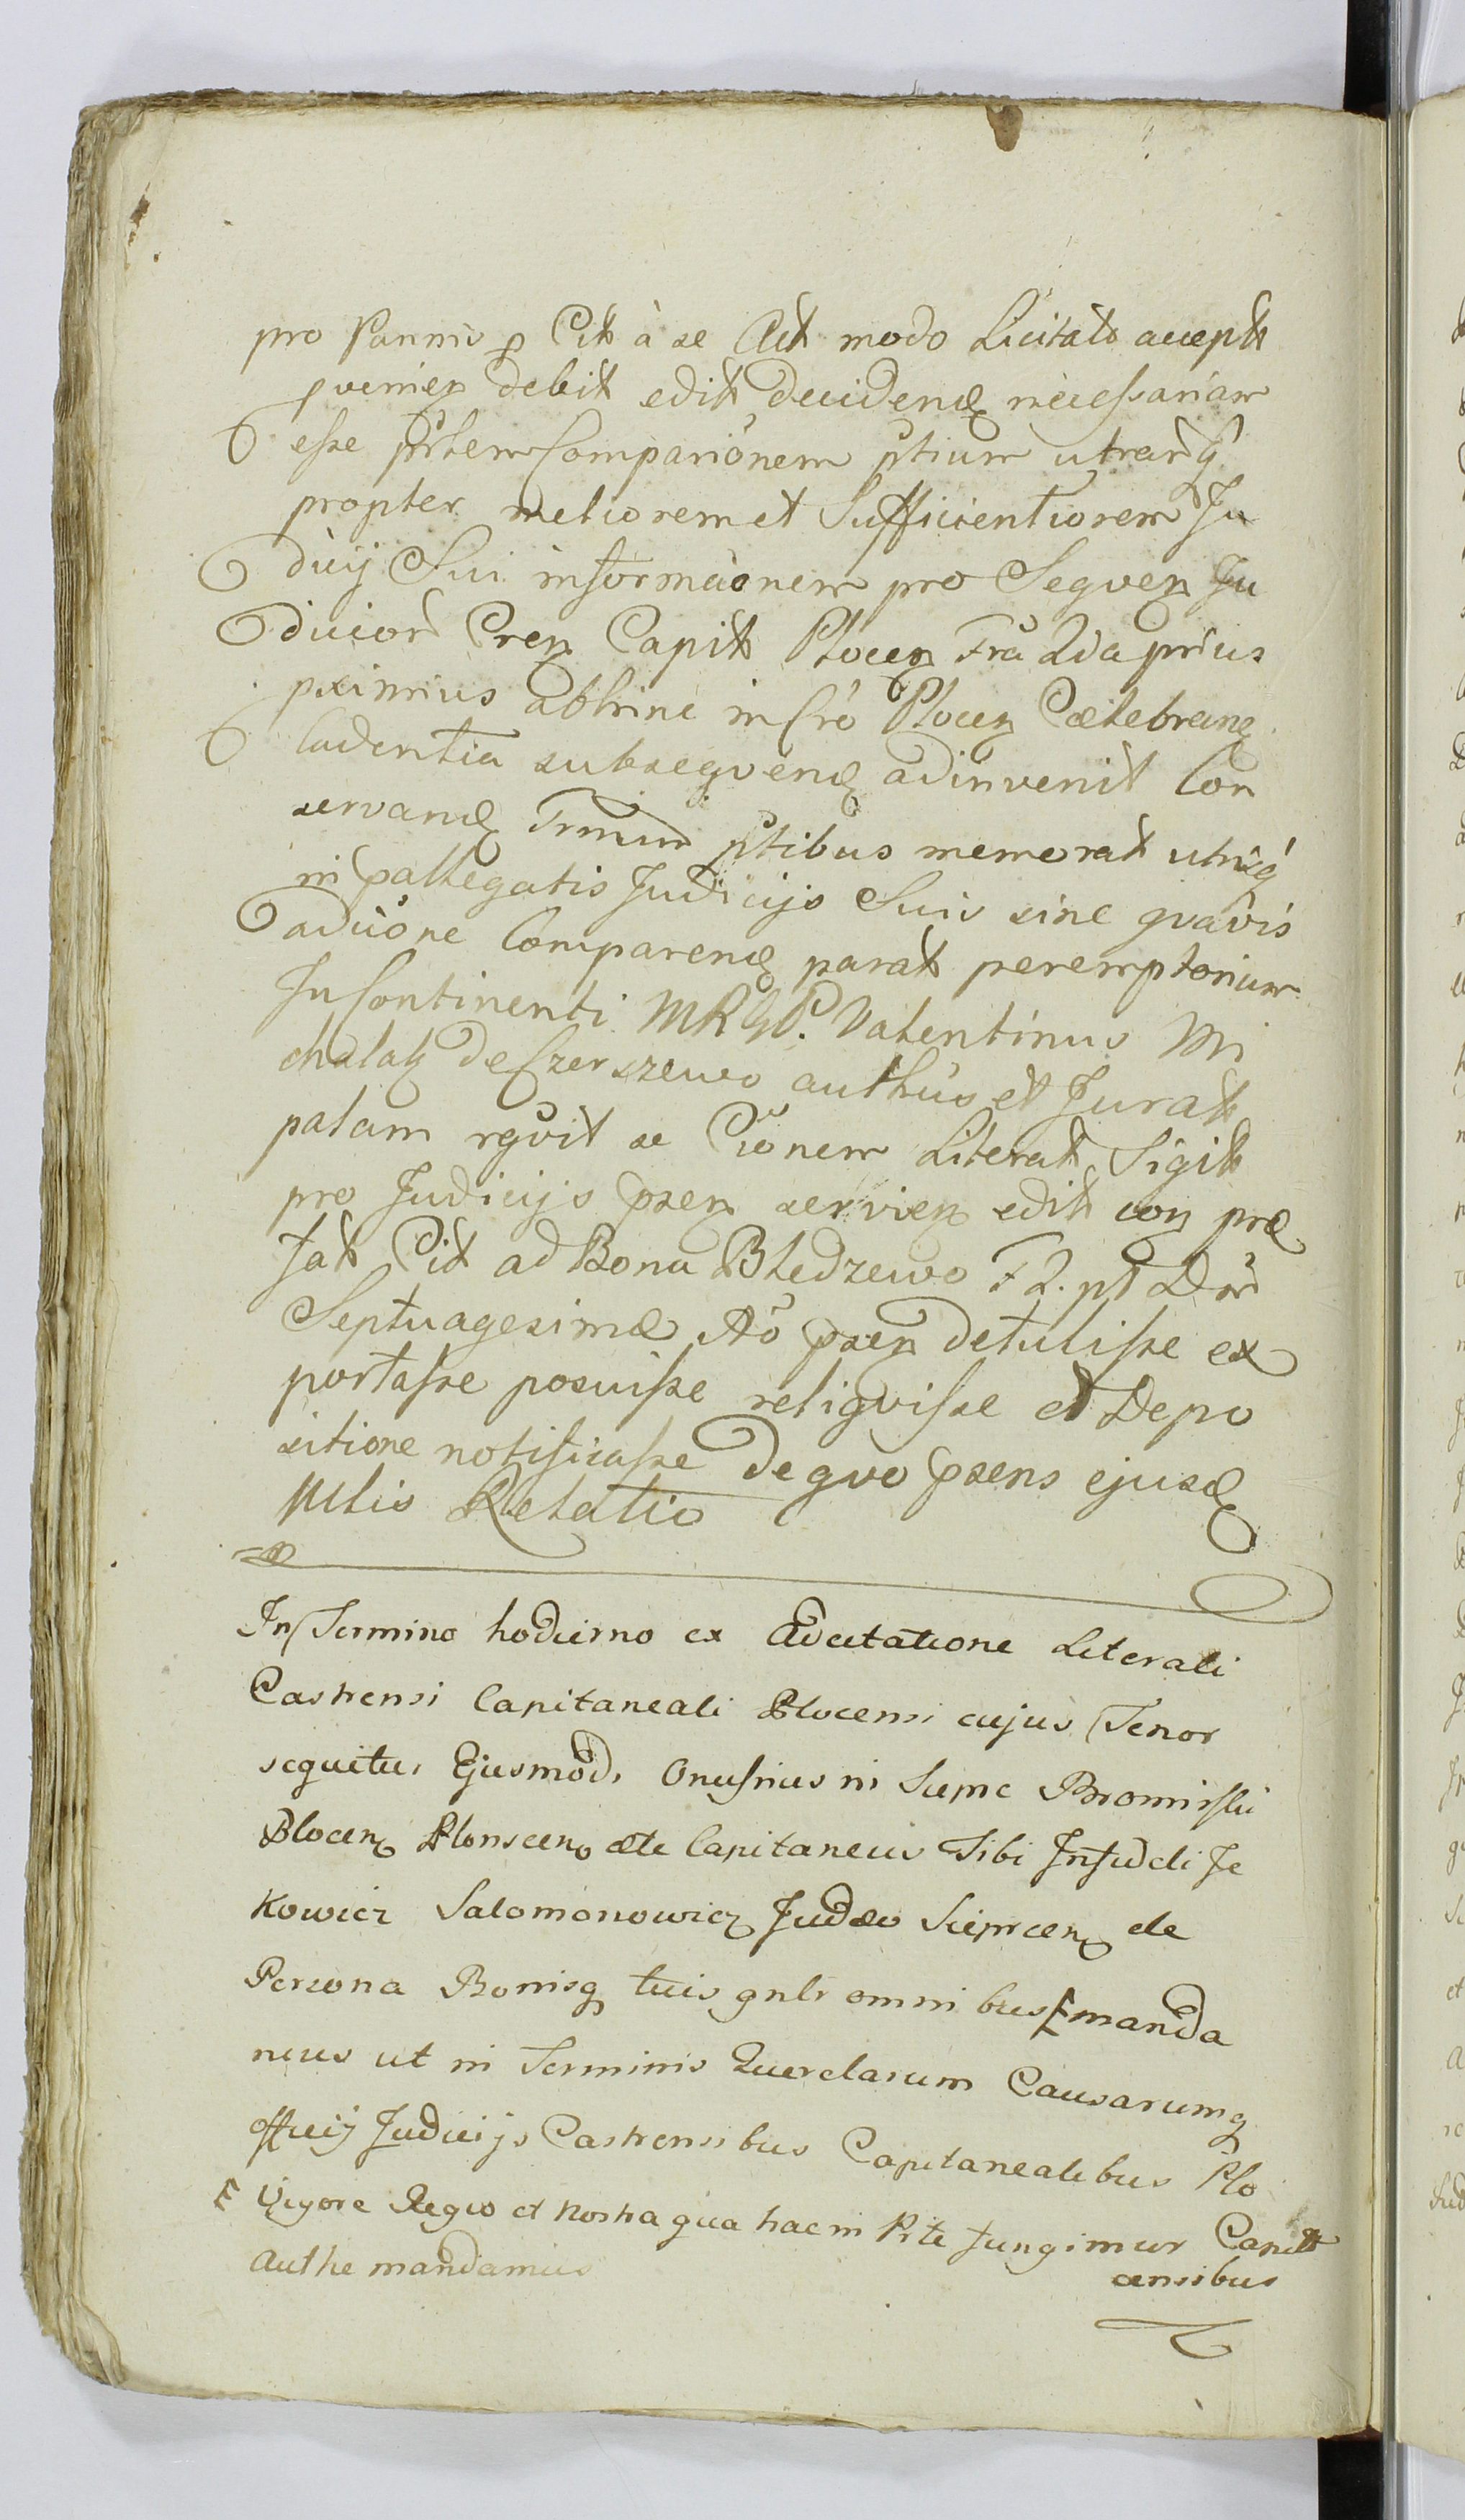 pro Pannis p Citt à se Act modo Licitato accept
pvenien debit edit decidend necessariam
esse prtem Comparionem ptium utrarq
propter meliorem et Sufficientiorem Ju
dicij Sui informaonem pro Seqven Ju
dicior Cren Capit Plocen Fra 2da prius
pximius abhinc in Cro Plocen Celebrand
Cadentia subseqvend adinvenit Con
servand Trmin ptibus memorat utrisq
in pallegatis Judicijs Suis sine qvavis
adcione Comparend parat peremptorium
In Continenti MRGD. Valentinus Mi
chalak de Czerszewo authus et Jurat
palam rgvit se Cionem Literat Sigit
pro Judicijs psen servien edit con præ
fat Cit ad Bona Bledzewo F 2. pt Dm
Septuagesimæ Ao psen detulisse ex
portasse posuisse reliqvisse et Depo
sitione notificasse de qvo psens ejusd
Mtlis Relatio
In Termino hodierno ex Adcitatione Literali
Castrensi Capitaneali Plocensi cujus Tenor
sequitur Ejusmodi Onufrius in Siepie Bromirski
Plocen Plonscen etc Capitaneus Tibi Infideli Je
kowicz Salomonowicz Judæo Sieprcen de
Persona Bonisq tuis gnlr omnibus manda
mus ut in Terminis Querelarum Causarumq
officij Judicijs Castrensibus Capitanealibus Plo
Vigore Regio et Nostra qua hac in Pte fungimur Capitt
Authe mandamus
censibus